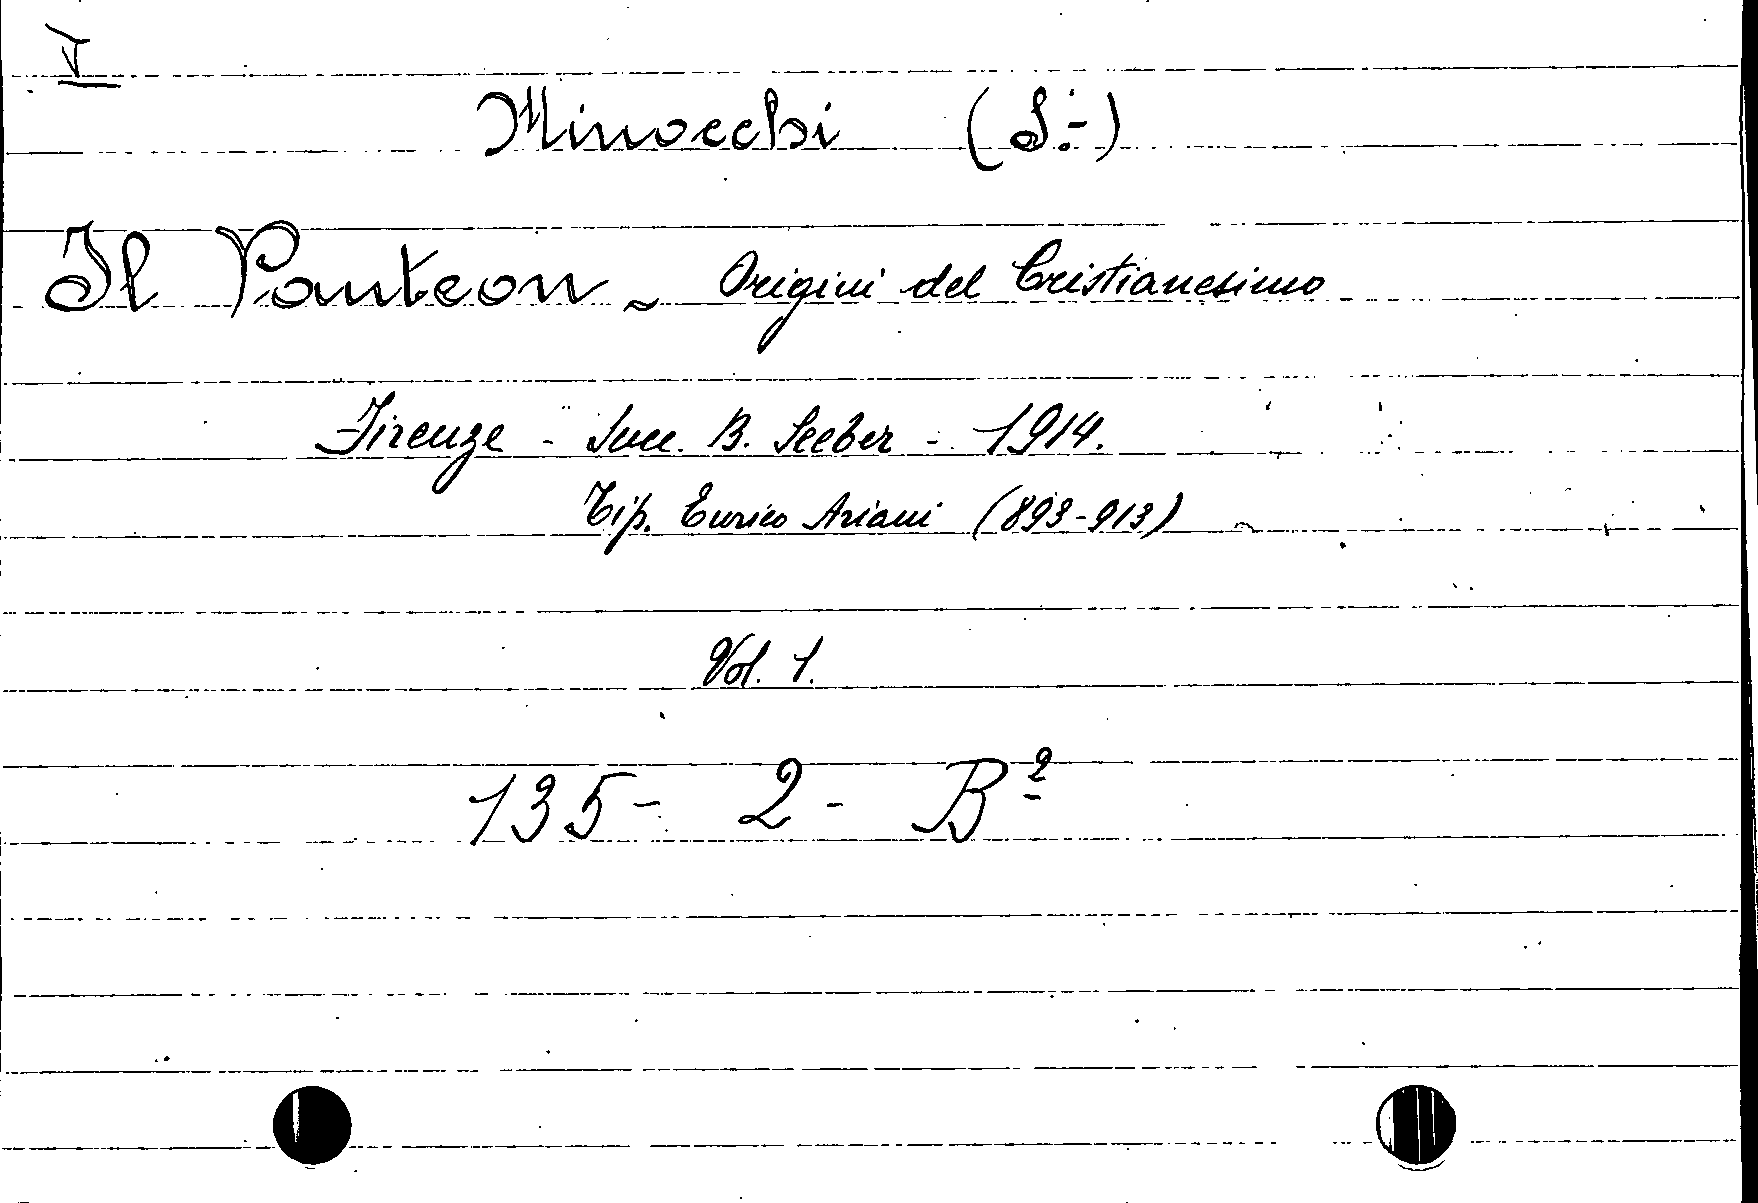 V
Minocchi (S:-)
Il Panteon - Origini del Cristianesimo
Firenze - Succ. B. Seeber - 1914.
Tip. Enrico Ariani (893-913)
Vol. 1.
135 - 2 - B²